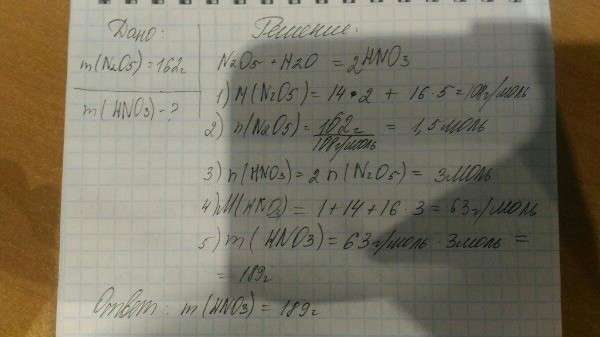 Дано:
m(N2O5) = 162г
m(HNO3) - ?
Решение.
N2O5 + H2O = 2HNO3
1) M(N2O5) = 14 • 2 + 16 · 5 = 108г/моль
2) n(N2O5) = 162г / 108г/моль = 1,5 моль
3) n(HNO3) = 2 n(N2O5) = 3моль
4) M(HNO3) = 1 + 14 + 16 · 3 = 63г/моль
5) m(HNO3) = 63г/моль · 3моль =
= 189г
Ответ: m(HNO3) = 189г